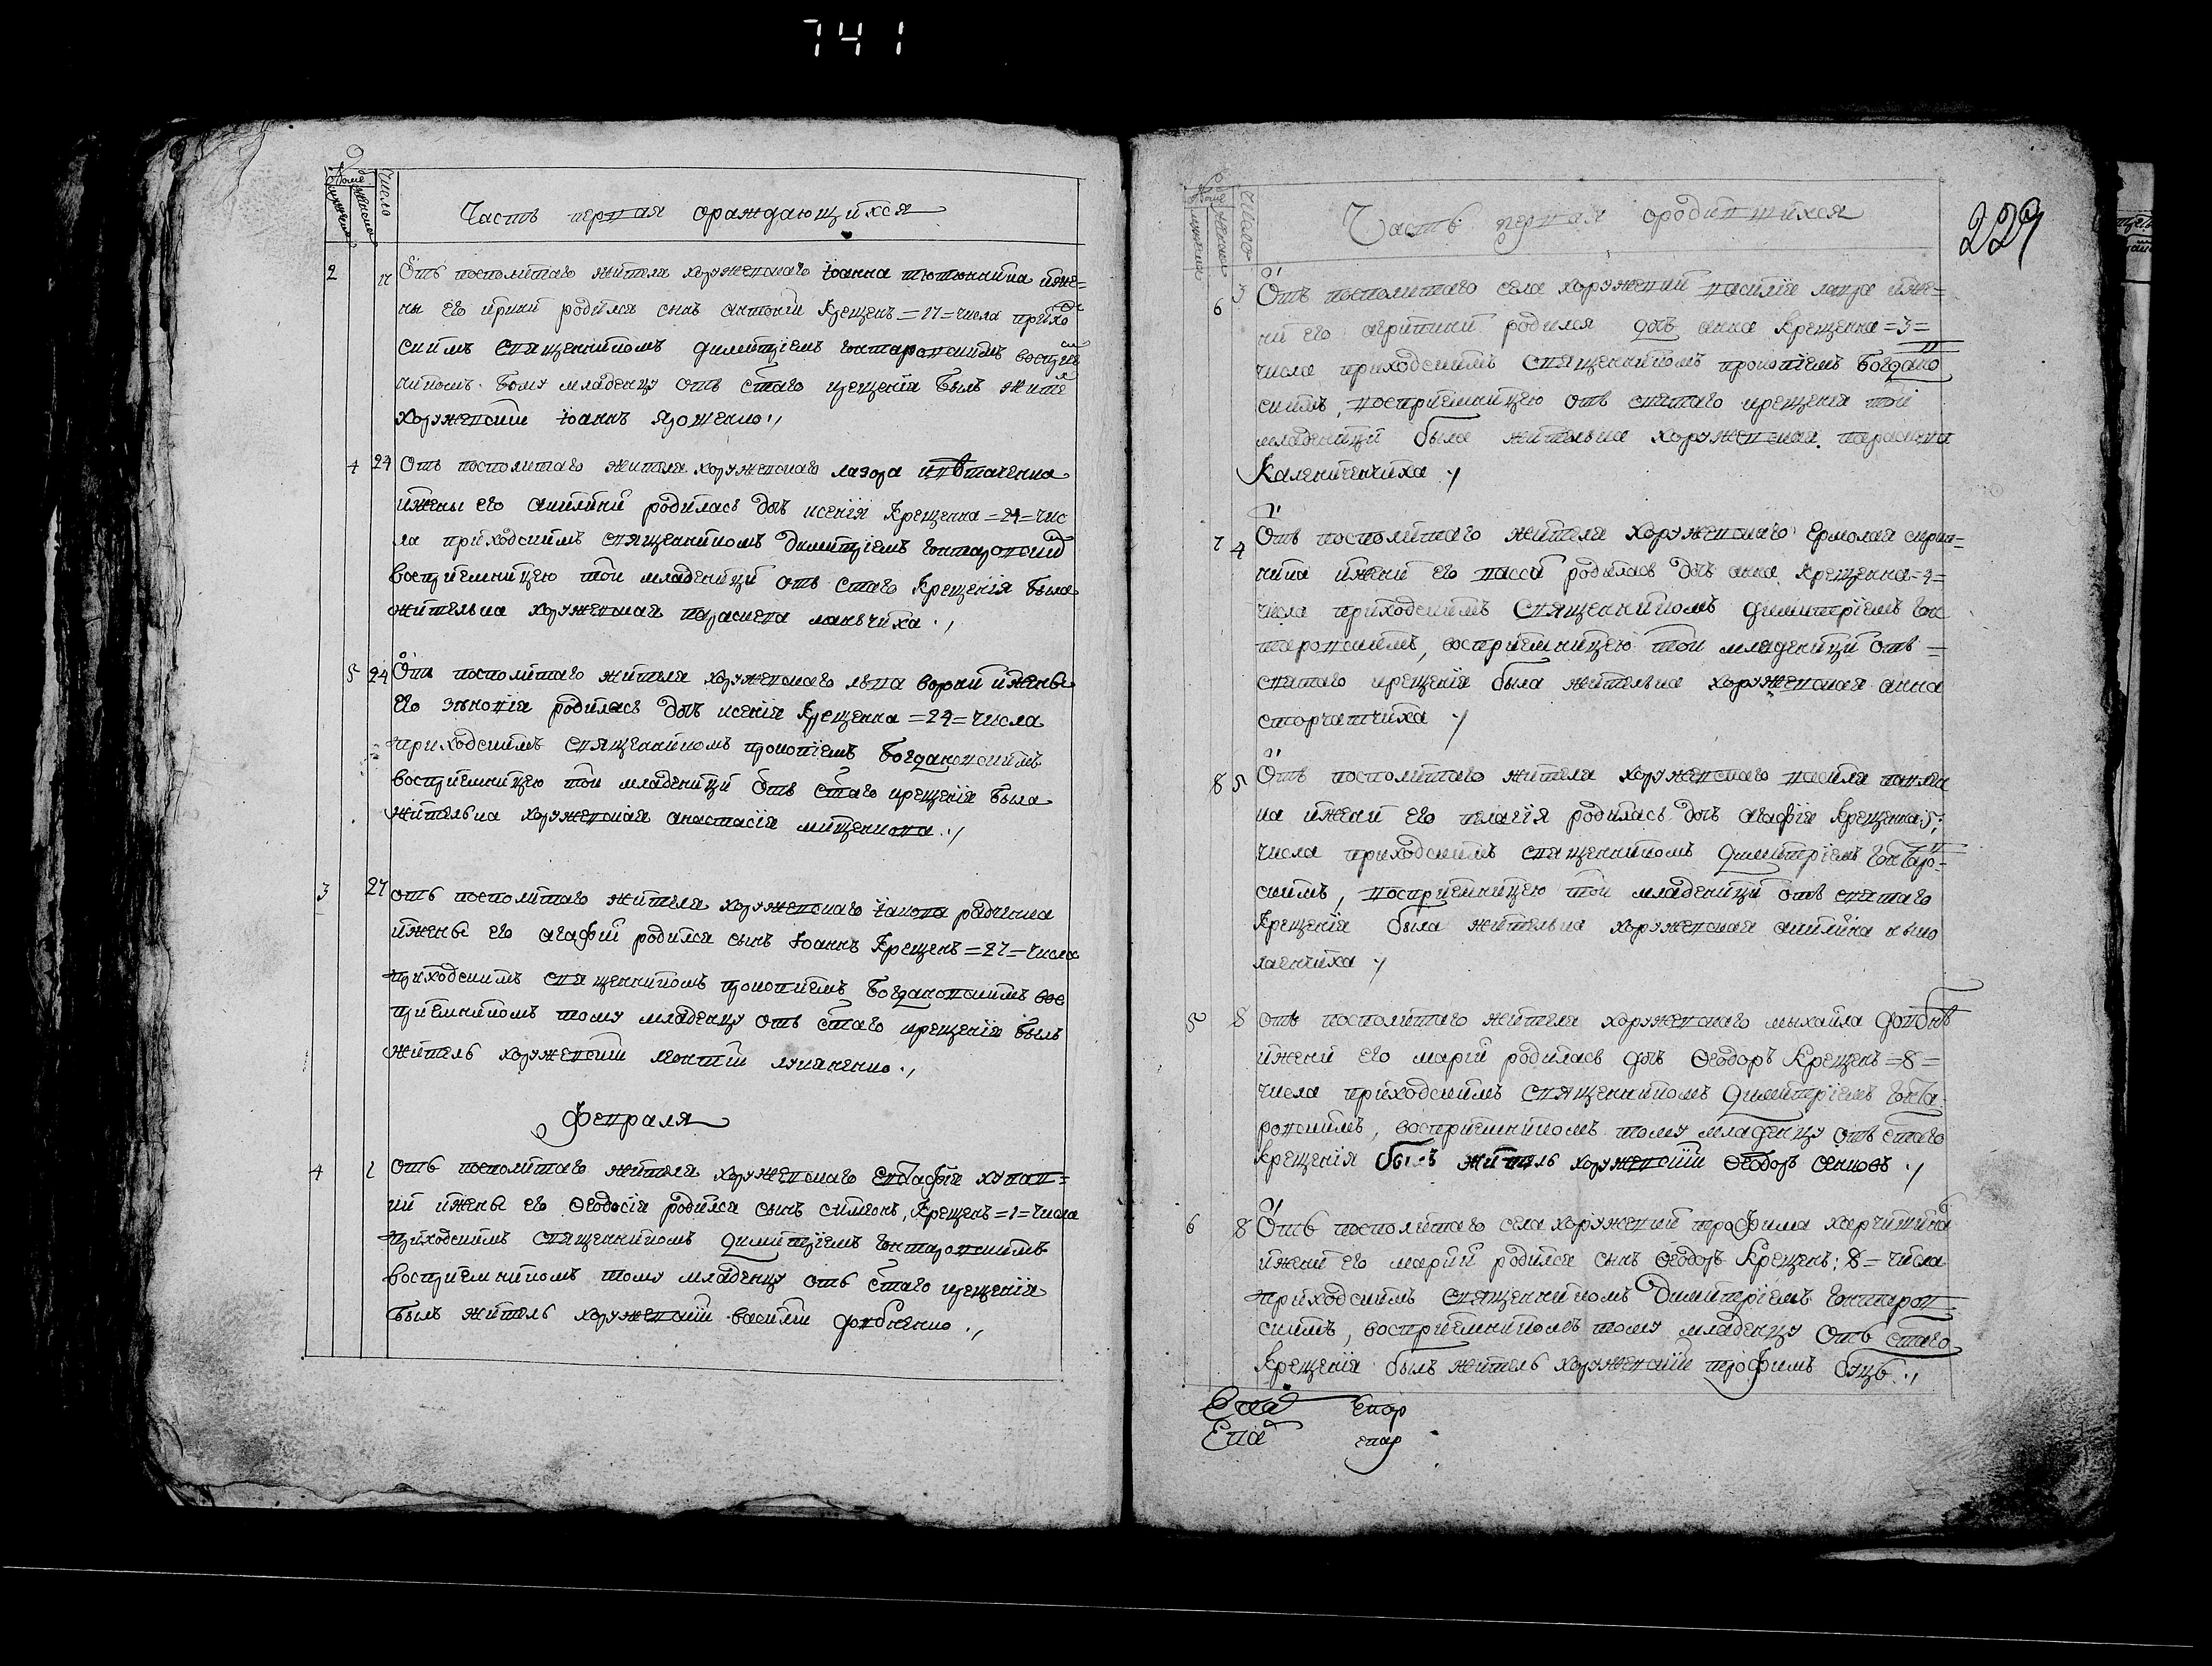 741
число
Часть первая ораждающихся
2 17 Отъ посполитаго жителя хоружевскаго іоанна тютюнника ижe=
ны его ирини родился снъ антоній крещенъ =17= числа прихо
скимъ священникомъ димитріемъ гонтаровскимъ воспрем
никомъ тому младенцу отъ стаго крещенія былъ жител
хоружевскій іоаннъ ярошенко
4 24 Отъ посполитаго жителя хоружевскаго лазора
ижены его акилини родилась дщъ ксенія крещенна =24= чис
ла приходскимъ священникомъ димитріемъ гонтаровским
воспріемницею той младеници отъ стаго крещенія была
жителька хоружевская параскева
5 24 Отъ посполитаго жителя хоружевскаго льва ворони ижены
его зѣновія родилась дщъ ксенія крещенна =24= числа
приходскимъ священникомъ прокопіемъ богдановскимъ
воспріемницею той младеници отъ стаго крещенія была
жителька хоружевская анастасія мищенкова
3 27 отъ посполитаго жителя хоружевскаго іакова радченка
ижены его агафіи родился сынъ іоаннъ крещенъ =27= числа
приходскимъ священникомъ прокопиемъ богдановскимъ вос
приемникомъ тому младенцу отъ стаго крещенія былъ
житель хоружевскій леонтій
Февраля
4 1 отъ посполитаго жителя хоружевскаго
ижены его ѳеодосія родился сынъ симеонъ, крещенъ =1= числа
приходскимъ священникомъ димитріемъ гонтаровскимъ
воспріемникомъ тому младенцу отъ стаго крещенія
былъ житель хоружевскій василій довбненко
229
число
Часть первая ородившихся
6 3 Отъ посполитаго села хоружевки василія лавра ижe=
ни его агрипини родился дщъ анна крещенна =3=
числа приходскимъ священникомъ прокопіемъ богдано
скимъ, воспріемницею отъ святаго крещенія той
младеници была жителька хоружевская параскева
Калениченчиха
7 4 Отъ посполитаго жителя хоружевскаго Ермолая скрип=
ника ижени его васси родилась дщъ анна крещенна =4=
числа приходскимъ священникомъ димитріемъ гон
таровскимъ, воспріемницею той младеници отъ =
святаго крещенія была жителька хоружевская анна
8 5 Отъ посполитаго жителя хоружевскаго василя павлен
ка ижени его пелагія родилась дщъ агафія крещенна 5;
числа приходскимъ священникомъ димитріемъ гонтаро=
скимъ, воспріемницею той младеници отъ святаго
крещенія была жителька хоружевская акилина
5 8 отъ посполитаго жителя хоружевскаго михаила довбнѣ
ижени его маріи родилась дщъ Ѳеодоръ крещенъ =8=
числа приходскимъ священникомъ димитріемъ гонта
ровскимъ, воспріемникомъ тому младенцу отъ стаго
крещенія былъ житель хоружевскій Ѳеодоръ
6 8 Отъ посполитаго села хоружевки трофима
ижени его маріи родился сынъ Ѳеодоръ крещенъ; 8= числа
приходскимъ священникомъ димитріемъ гонтаров=
скимъ, воспріемникомъ тому младенцу отъ стаго
крещенія былъ житель хоружевскій трофимъ